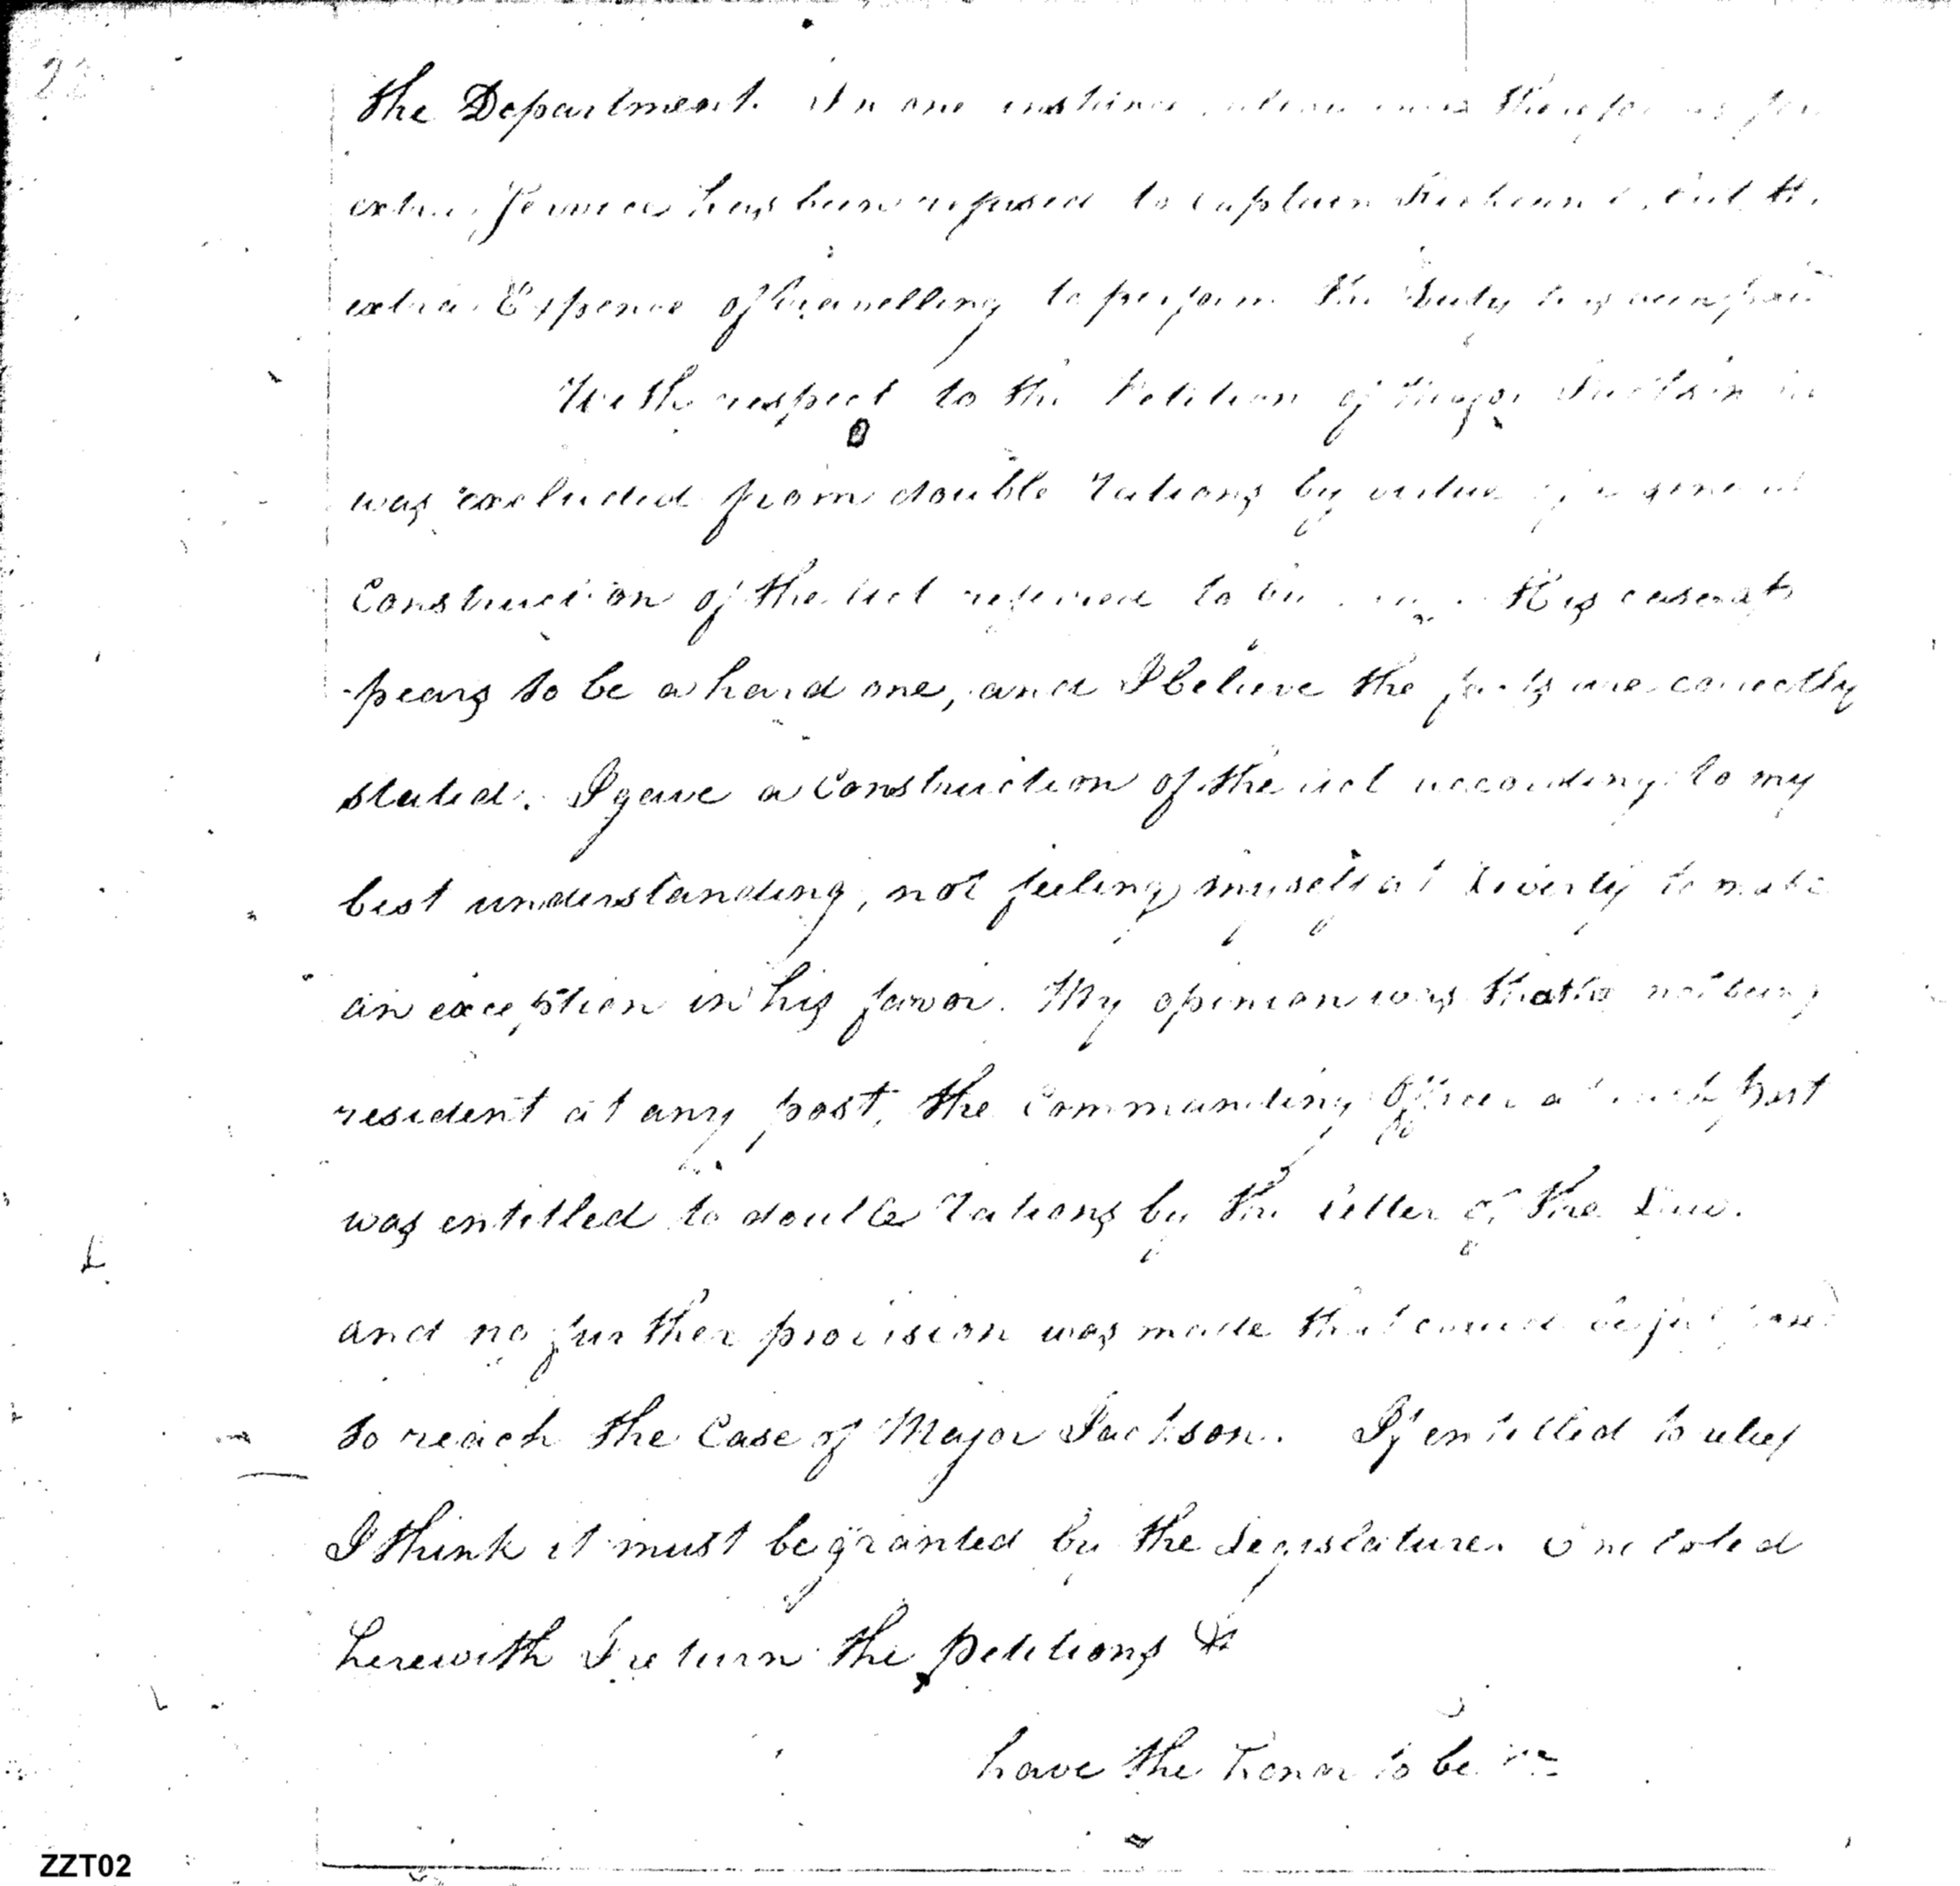 22
the Department. In one instance
extra Services has been refused to Captain but the
extra Expence of travelling to perform the Duty has been paid
With respect to the Petition of Major Jackson he
was excluded from double rations by virtue of a general
Construction of the act referred to by His case ap
pears to be a hard one, and I believe the facts are correctly
stated. I gave a Construction of the act according to my
best understanding, not feeling myself at liberty to make
an exception in his favor. My opinion was that he not being
resident at any post, the Commanding Officer at each post
was entitled to double rations by the letter of the Law.
and no further provision was made that could be
to reach the Case of Major Jackson. If entitled to relief
I think it must be granted by the Legislature. Enclosed
herewith I return the petitions &
have the honor to be &c
ZZT02